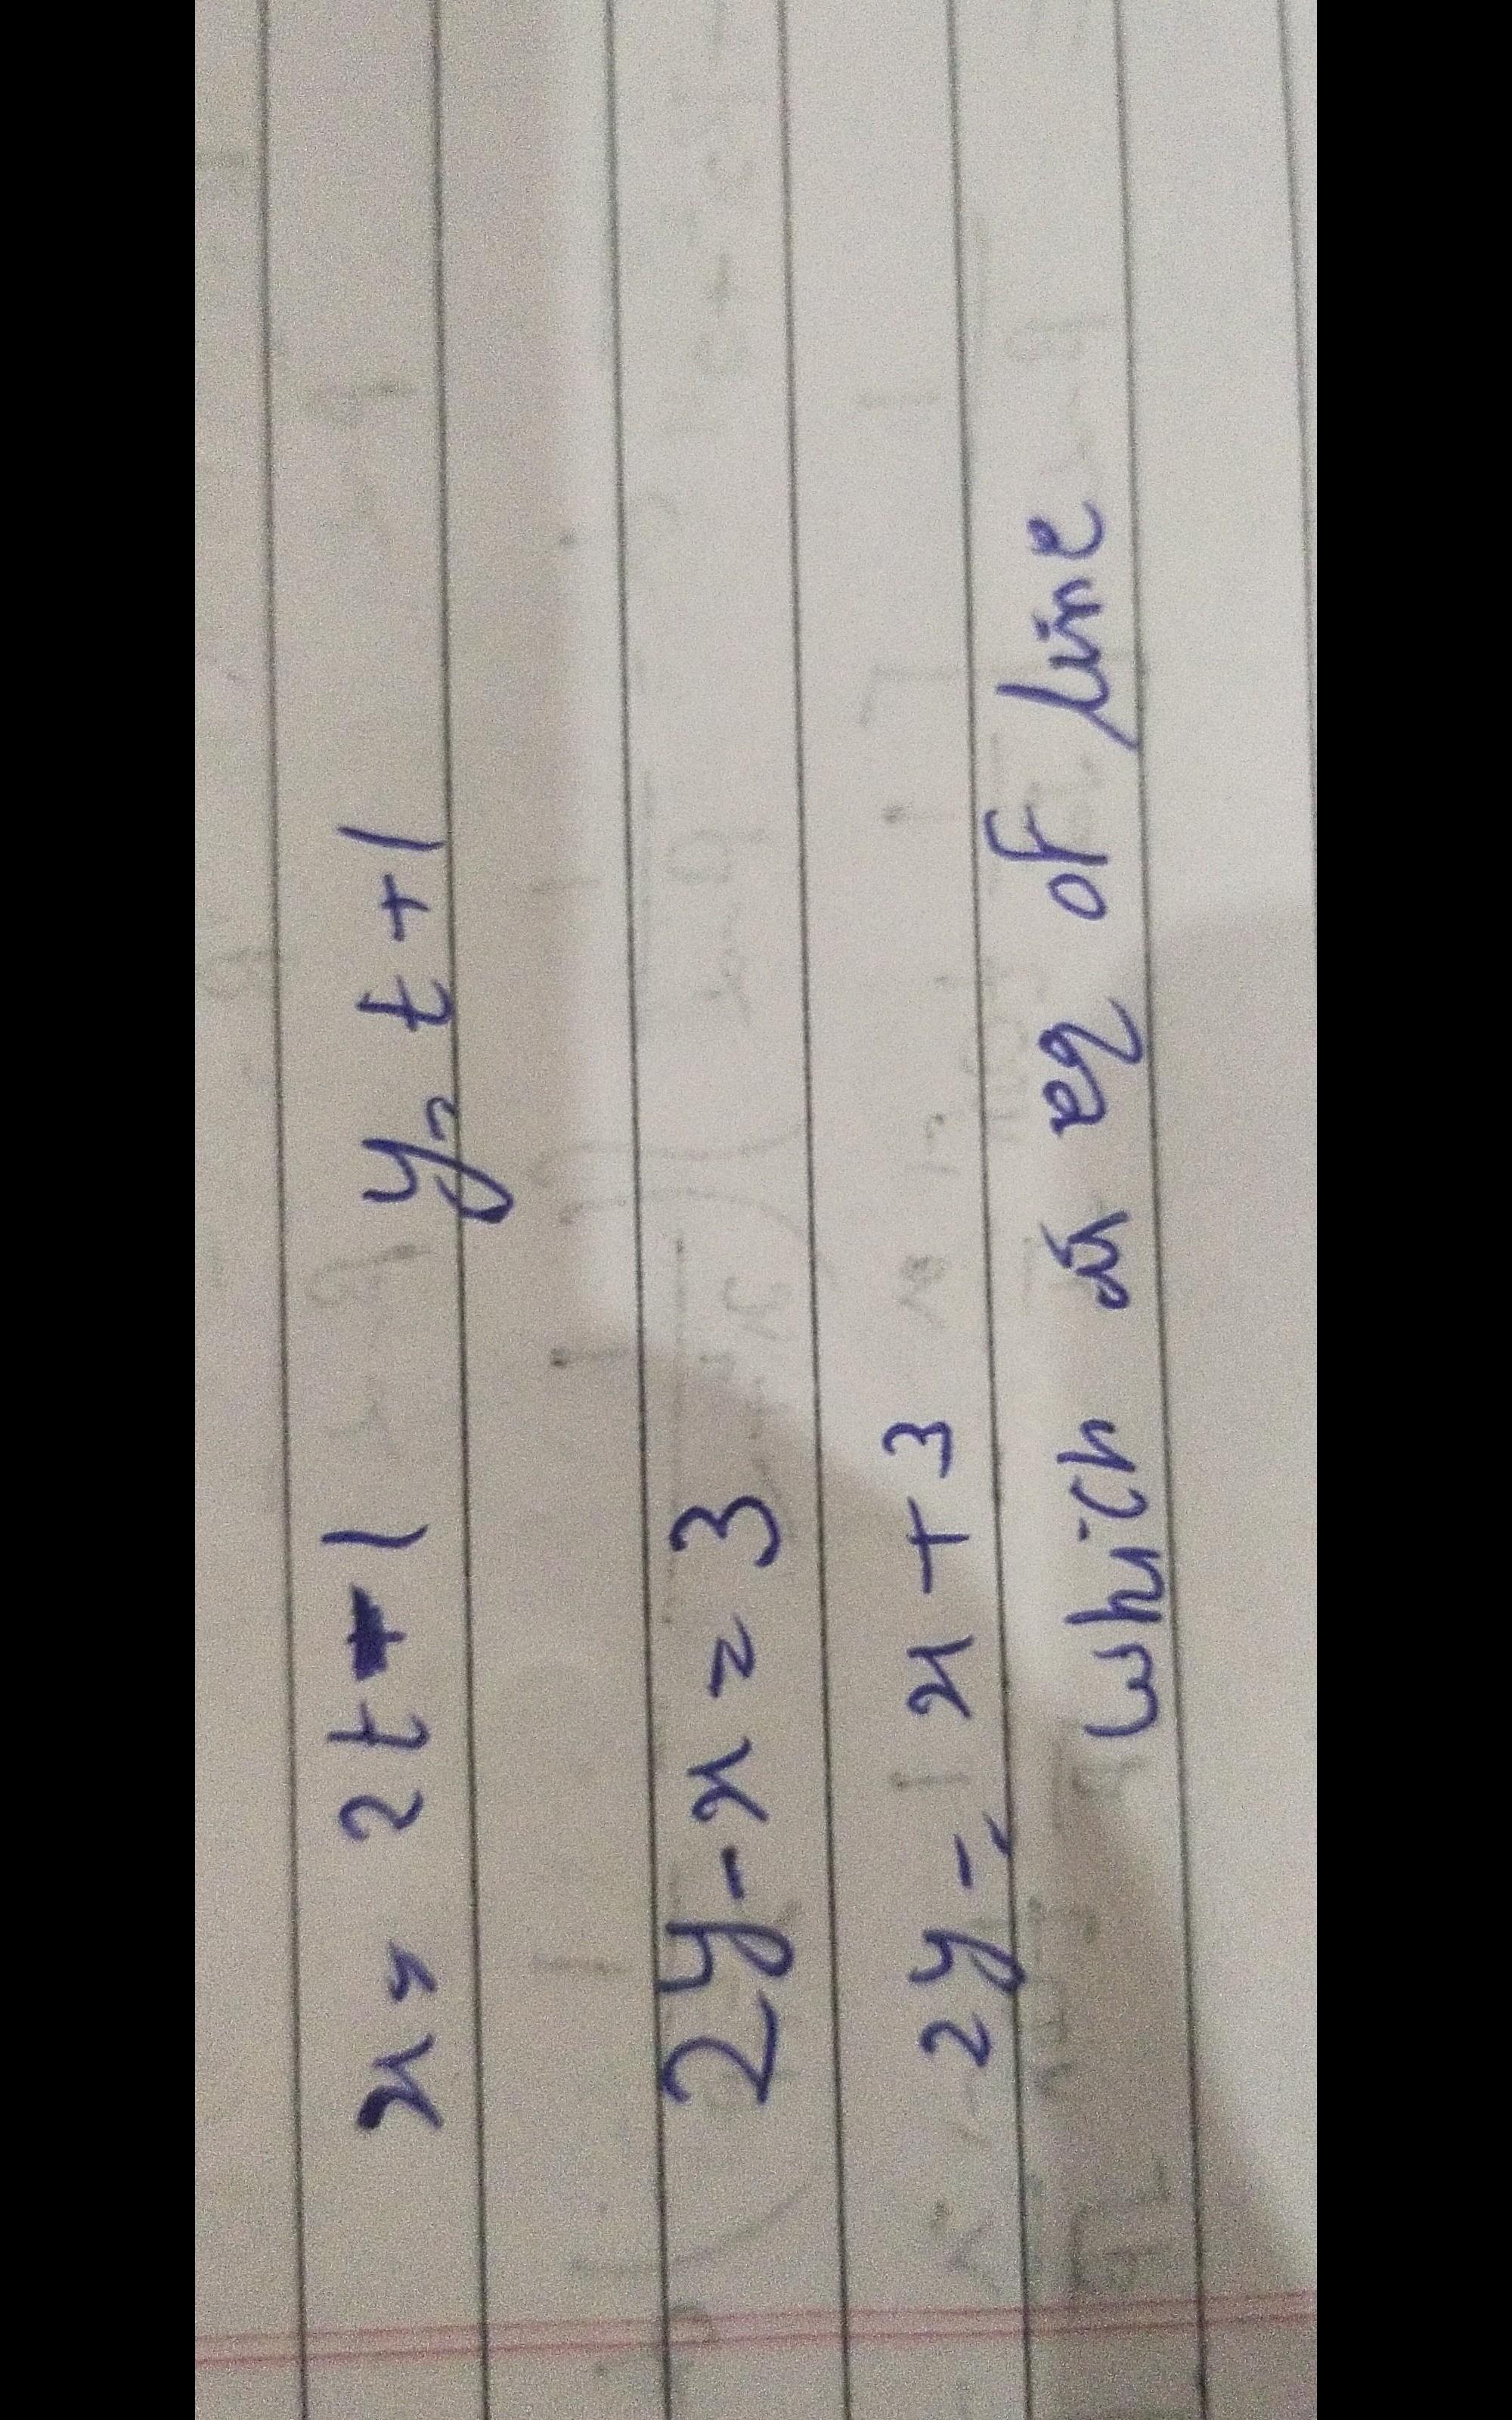 x = 2t - 1 y = t + 1
2y - x = 3
2y = x + 3
which is eq of line